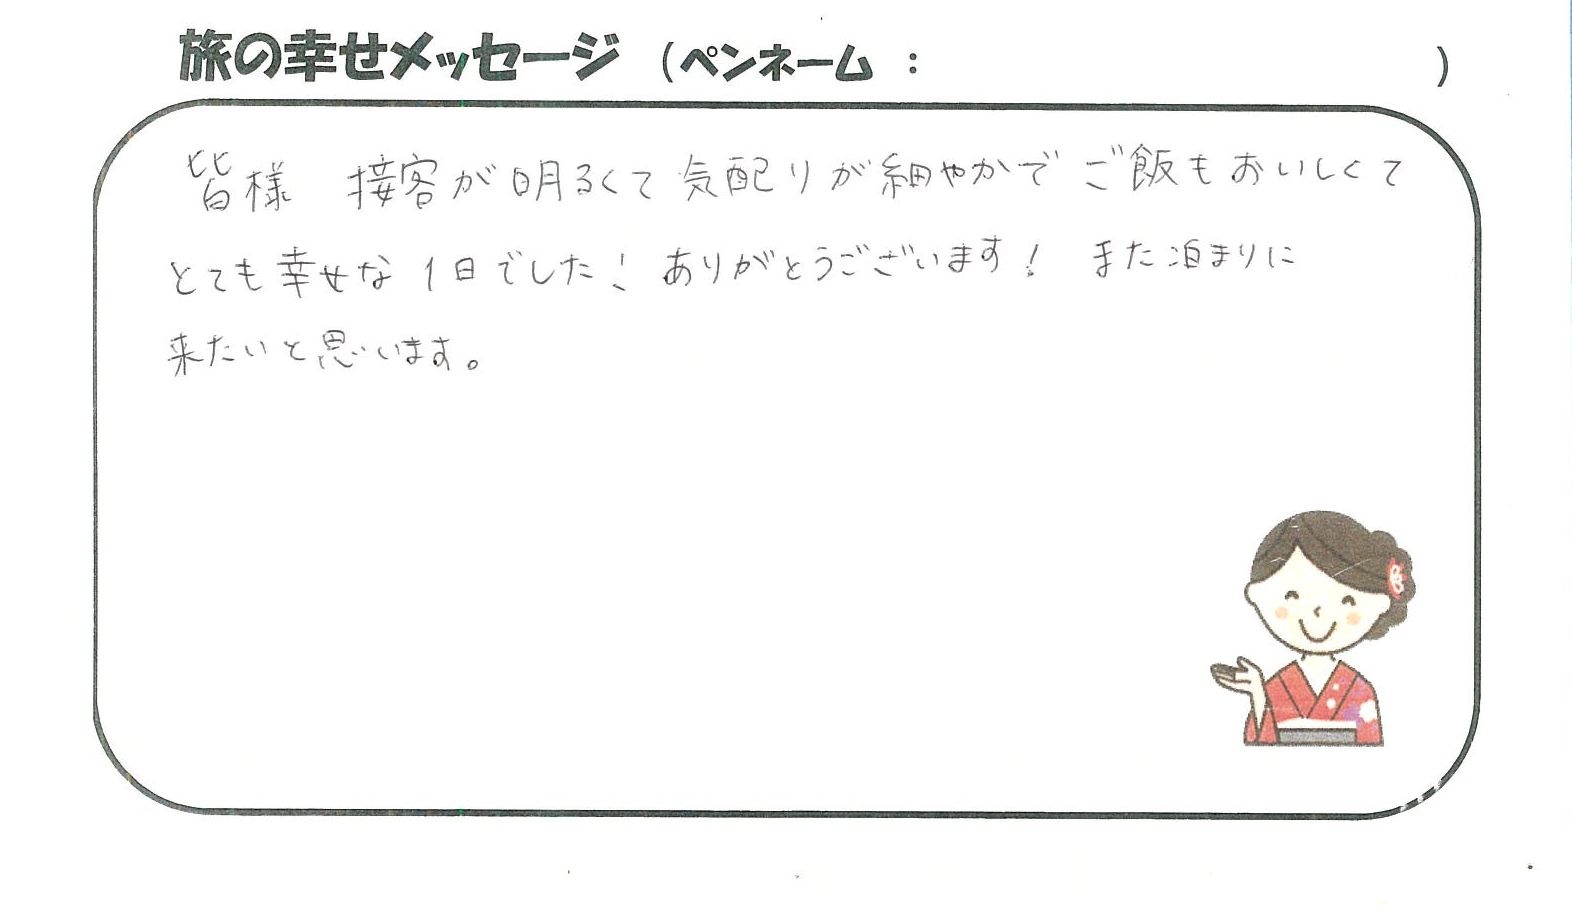 旅の幸せメッセージ (ペンネーム : )
皆様 接客が明るくて気配りが細やかで ご飯もおいしくて
とても幸せな1日でした! ありがとうございます! また泊まりに
来たいと思います。